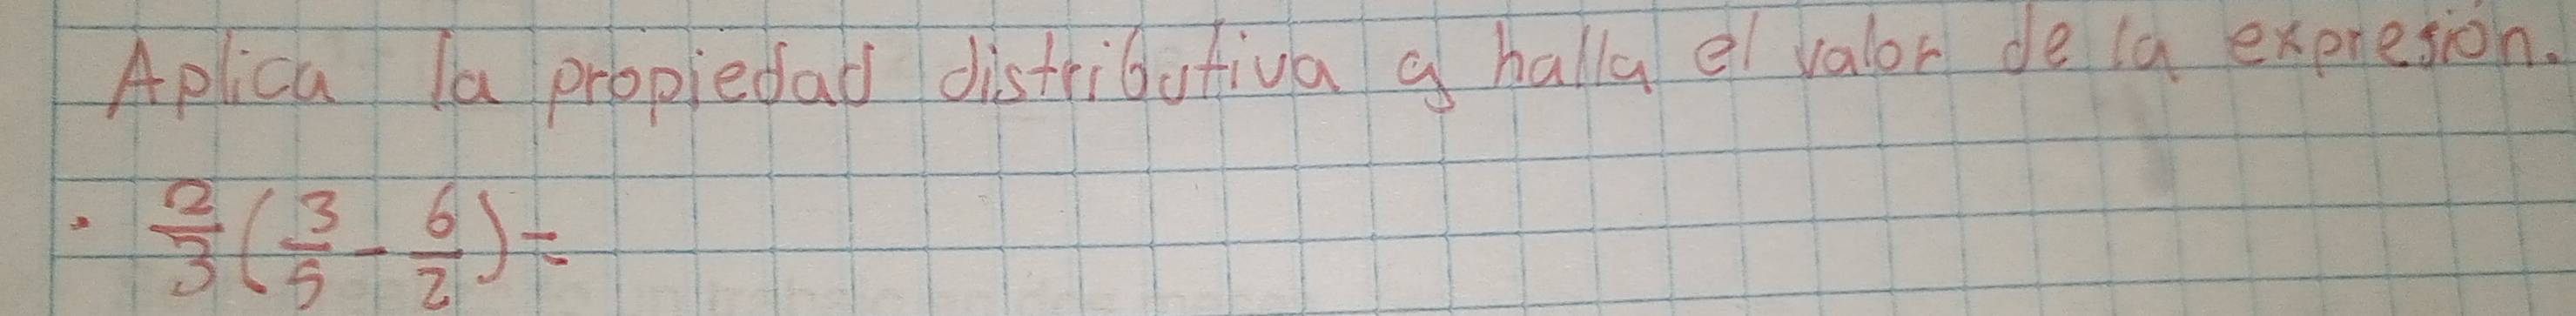 Aplica la propiedad distributiva y halla el valor de la expresión.
· 2/3 (3/5 - 6/2) =